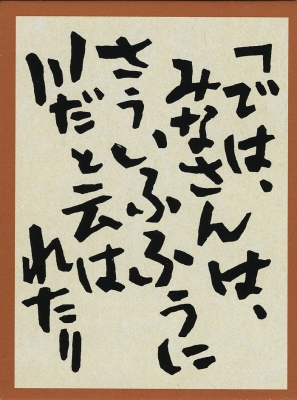 「では、
みなさんは、
さういふふうに
川だと云は
れたり